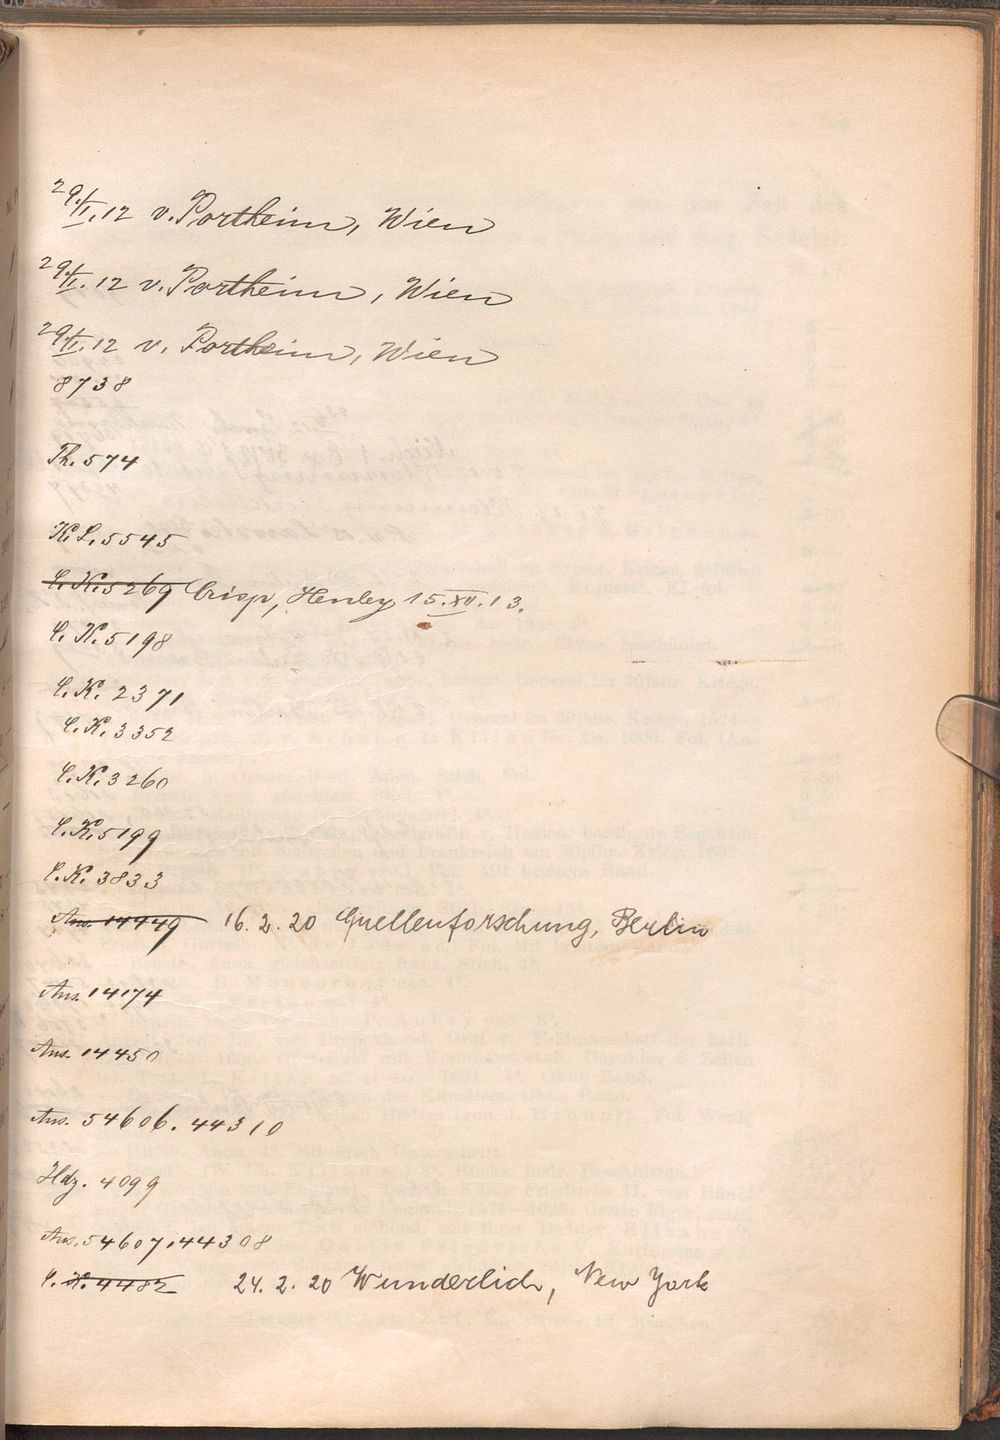 29./I.12 v. Portheim, Wien
29./I.12 v. Portheim, Wien
29./I.12 v. Portheim, Wien
8738
Th. 574
K.L. 5545
C.K. 5269 Crisp, Henley 15.XII.13.
C.K. 5198
C.K. 2371
C.K. 3352
C.K. 3260
C.K. 5199
C.K. 3833
Ans. 14449 16.2.20 Quellenforschung, Berlin
Ans. 14174
Ans. 14450
Ans. 54606. 44310
Hdz. 4099
Ans. 54607. 44308
C.K. 4482 24.2.20 Wunderlich, New York